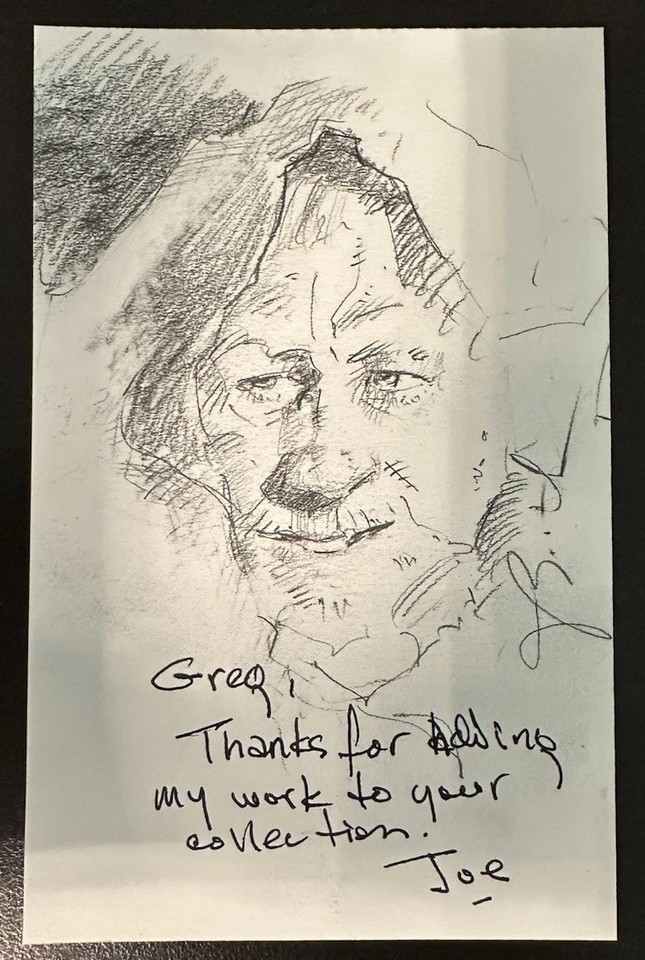 Greg,
Thanks for Adding
my work to your
collection.
Joe